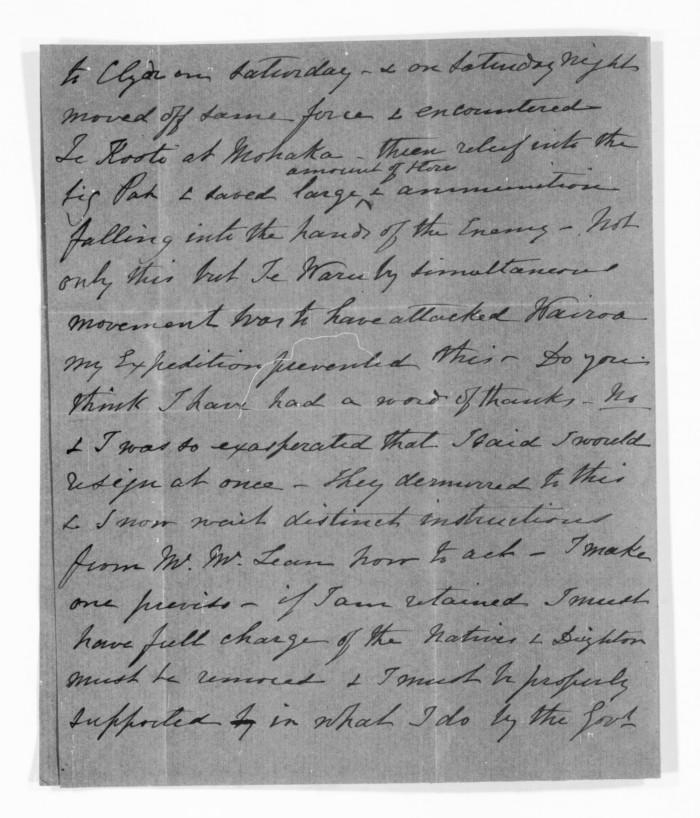 to Clyde on Saturday - & on Saturday night
moved off same force & encountered
Te Kooti at Mohaka - threw relief into the
big Pah & saved large amount of store & ammunition
falling into the hands of the Enemy - Not
only this but Te Waru by simultaneous
movement was to have attacked Wairoa
my Expedition prevented this - Do you
think I have had a word of thanks - No
& I was so exasperated that I said I would
resign at once - they demurred to this
& I now wait distinct instructions
from Mr. McLean how to act - I make
one proviso - if I am retained I must
have full charge of the Natives & Deighton
must be removed & I must be properly
supported by in what I do by the Govt